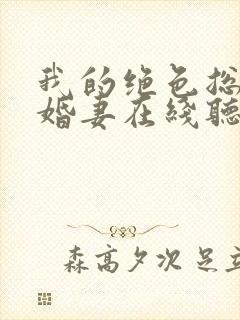 我的绝色总
婚妻在线听
森高夕次 足立